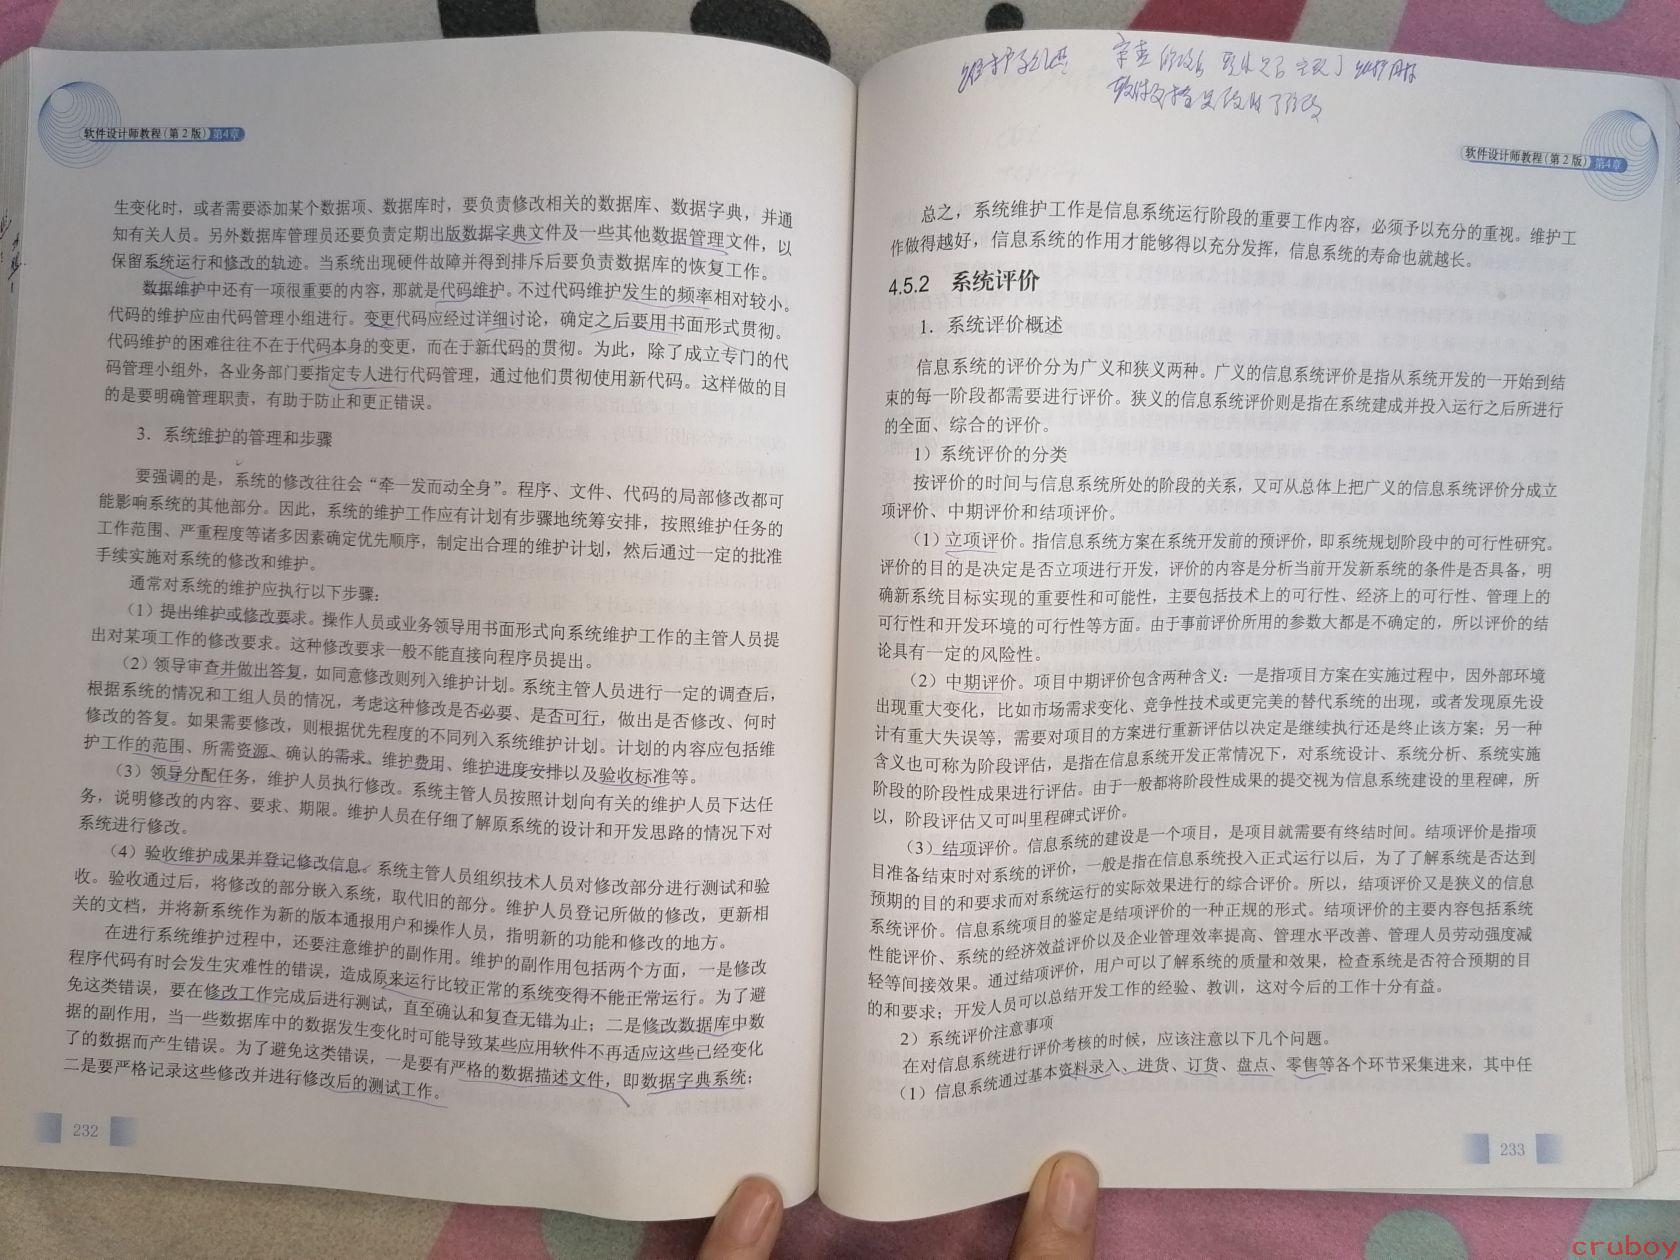 软件设计师教程(第2版) 第4章
生变化时，或者需要添加某个数据项、数据库时，要负责修改相关的数据库、数据字典，并通
知有关人员。另外数据库管理员还要负责定期出版数据字典文件及一些其他数据管理文件，以
保留系统运行和修改的轨迹。当系统出现硬件故障并得到排斥后要负责数据库的恢复工作。
数据维护中还有一项很重要的内容，那就是代码维护。不过代码维护发生的频率相对较小。
代码的维护应由代码管理小组进行。变更代码应经过详细讨论，确定之后要用书面形式贯彻。
代码维护的困难往往不在于代码本身的变更，而在于新代码的贯彻。为此，除了成立专门的代
码管理小组外，各业务部门要指定专人进行代码管理，通过他们贯彻使用新代码。这样做的目
的是要明确管理职责，有助于防止和更正错误。
3．系统维护的管理和步骤
要强调的是，系统的修改往往会“牵一发而动全身”。程序、文件、代码的局部修改都可
能影响系统的其他部分。因此，系统的维护工作应有计划有步骤地统筹安排，按照维护任务的
工作范围、严重程度等诸多因素确定优先顺序，制定出合理的维护计划，然后通过一定的批准
手续实施对系统的修改和维护。
通常对系统的维护应执行以下步骤：
（1）提出维护或修改要求。操作人员或业务领导用书面形式向系统维护工作的主管人员提
出对某项工作的修改要求。这种修改要求一般不能直接向程序员提出。
（2）领导审查并做出答复，如同意修改则列入维护计划。系统主管人员进行一定的调查后，
根据系统的情况和工组人员的情况，考虑这种修改是否必要、是否可行，做出是否修改、何时
修改的答复。如果需要修改，则根据优先程度的不同列入系统维护计划。计划的内容应包括维
护工作的范围、所需资源、确认的需求、维护费用、维护进度安排以及验收标准等。
（3）领导分配任务，维护人员执行修改。系统主管人员按照计划向有关的维护人员下达任
务，说明修改的内容、要求、期限。维护人员在仔细了解原系统的设计和开发思路的情况下对
系统进行修改。
（4）验收维护成果并登记修改信息。系统主管人员组织技术人员对修改部分进行测试和验
收。验收通过后，将修改的部分嵌入系统，取代旧的部分。维护人员登记所做的修改，更新相
关的文档，并将新系统作为新的版本通报用户和操作人员，指明新的功能和修改的地方。
在进行系统维护过程中，还要注意维护的副作用。维护的副作用包括两个方面，一是修改
程序代码有时会发生灾难性的错误，造成原来运行比较正常的系统变得不能正常运行。为了避
免这类错误，要在修改工作完成后进行测试，直至确认和复查无错为止；二是修改数据库中数
据的副作用，当一些数据库中的数据发生变化时可能导致某些应用软件不再适应这些已经变化
了的数据而产生错误。为了避免这类错误，一是要有严格的数据描述文件，即数据字典系统；
二是要严格记录这些修改并进行修改后的测试工作。
232
软件设计师教程(第2版) 第4章
总之，系统维护工作是信息系统运行阶段的重要工作内容，必须予以充分的重视。维护工
作做得越好，信息系统的作用才能够得以充分发挥，信息系统的寿命也就越长。
4.5.2 系统评价
1．系统评价概述
信息系统的评价分为广义和狭义两种。广义的信息系统评价是指从系统开发的一开始到结
束的每一阶段都需要进行评价。狭义的信息系统评价则是指在系统建成并投入运行之后所进行
的全面、综合的评价。
1）系统评价的分类
按评价的时间与信息系统所处的阶段的关系，又可从总体上把广义的信息系统评价分成立
项评价、中期评价和结项评价。
（1）立项评价。指信息系统方案在系统开发前的预评价，即系统规划阶段中的可行性研究。
评价的目的是决定是否立项进行开发，评价的内容是分析当前开发新系统的条件是否具备，明
确新系统目标实现的重要性和可能性，主要包括技术上的可行性、经济上的可行性、管理上的
可行性和开发环境的可行性等方面。由于事前评价所用的参数大都是不确定的，所以评价的结
论具有一定的风险性。
（2）中期评价。项目中期评价包含两种含义：一是指项目方案在实施过程中，因外部环境
出现重大变化，比如市场需求变化、竞争性技术或更完美的替代系统的出现，或者发现原先设
计有重大失误等，需要对项目的方案进行重新评估以决定是继续执行还是终止该方案；另一种
含义也可称为阶段评估，是指在信息系统开发正常情况下，对系统设计、系统分析、系统实施
阶段的阶段性成果进行评估。由于一般都将阶段性成果的提交视为信息系统建设的里程碑，所
以，阶段评估又可叫里程碑式评价。
（3）结项评价。信息系统的建设是一个项目，是项目就需要有终结时间。结项评价是指项
目准备结束时对系统的评价，一般是指在信息系统投入正式运行以后，为了了解系统是否达到
预期的目的和要求而对系统运行的实际效果进行的综合评价。所以，结项评价又是狭义的信息
系统评价。信息系统项目的鉴定是结项评价的一种正规的形式。结项评价的主要内容包括系统
性能评价、系统的经济效益评价以及企业管理效率提高、管理水平改善、管理人员劳动强度减
轻等间接效果。通过结项评价，用户可以了解系统的质量和效果，检查系统是否符合预期的目
的和要求；开发人员可以总结开发工作的经验、教训，这对今后的工作十分有益。
2）系统评价注意事项
在对信息系统进行评价考核的时候，应该注意以下几个问题。
（1）信息系统通过基本资料录入、进货、订货、盘点、零售等各个环节采集进来，其中任
233
cruboy